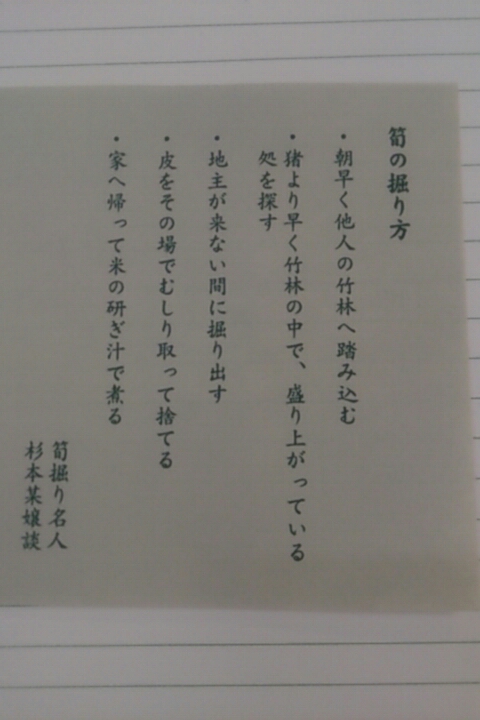 筍の掘り方
・朝早く他人の竹林へ踏み込む
・猪より早く竹林の中で、盛り上がっている
処を探す
・地主が来ない間に掘り出す
・皮をその場でむしり取って捨てる
・家へ帰って米の研ぎ汁で煮る
筍掘り名人
杉本某嬢談